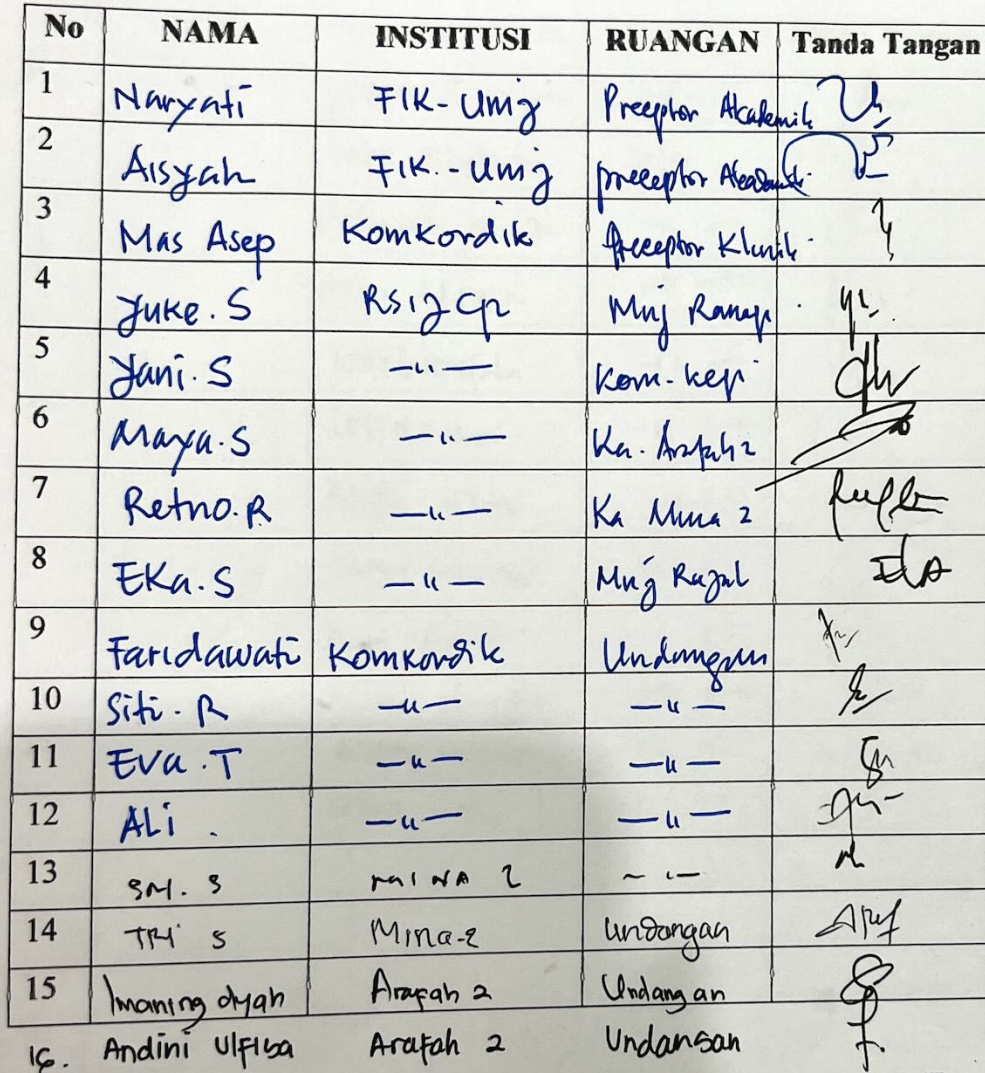 No NAMA INSTITUSI RUANGAN Tanda Tangan
1 Naryati FIK-UMJ Preeptor Akademik
2 Aisyah FIK.-UMJ preceptor Akademik
3 Mas Asep Komkordik Preceptor Klinik
4 Yuke.S RSIJ CP Mnj Ranap
5 Yani.S —"— Kom-kep
6 Maya.S —"— Ka. Arafah 2
7 Retno.R —"— Ka Mina 2
8 EKa.S —"— Mnj Rajal
9 Faridawati Komkordik Undangan
10 Siti.R —"— —"—
11 Eva.T —"— —"—
12 ALi. —"— —"—
13 MINA 2 —"—
14 TRI S Mina-2 undangan
15 Imaning dyah Arafah 2 Undangan
16. Andini Arafah 2 Undangan